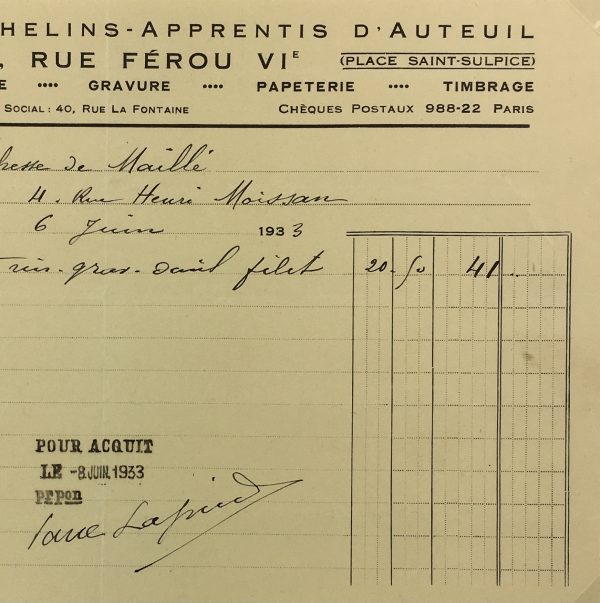 HELINS-APPRENTIS D'AUTEUIL
, RUE FÉROU VIE (PLACE SAINT-SULPICE)
E •••• GRAVURE •••• PAPETERIE •••• TIMBRAGE
SOCIAL : 40, RUE LA FONTAINE CHÈQUES POSTAUX 988-22 PARIS
hesse de Maillé
4. Rue Henri Moissan
6 Juin 1933
filet 20. 50 41
POUR ACQUIT
LE -8 JUIN 1933